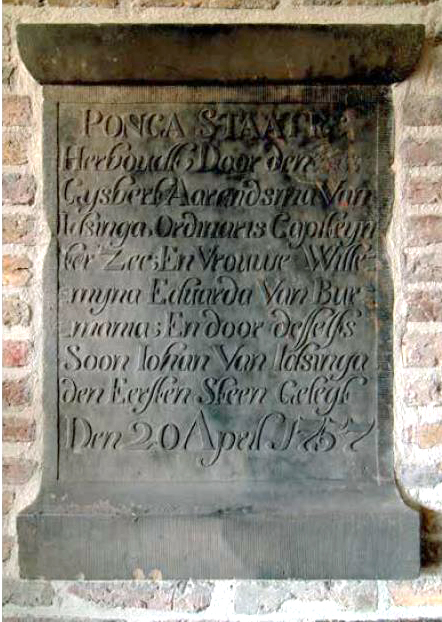 PONGA STAATE
Herboudt Door den
Gysbert Aarendsma Van
Idsinga Ordinaris Capiteyn
ter Zee; En Vrouwe Wille
myna Eduarda Van Bur
mania; En door desselfs
Soon Iohan Van Idsinga
den Eersten Steen Gelegt
Den 20 April 1757